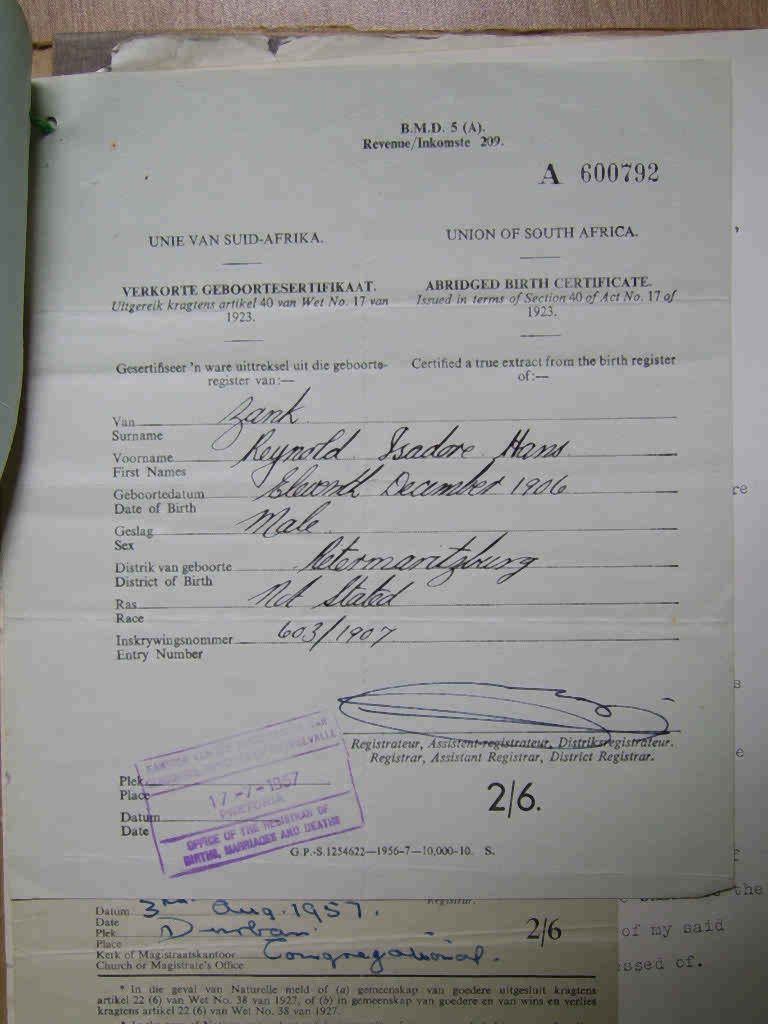 B.M.D. 5 (A).
Revenue/Inkomste 209.
A 600792
UNIE VAN SUID-AFRIKA.
UNION OF SOUTH AFRICA.
VERKORTE GEBOORTESERTIFIKAAT.
Uitgereik kragtens artikel 40 van Wet No. 17 van
1923.
ABRIDGED BIRTH CERTIFICATE.
Issued in terms of Section 40 of Act No. 17 of
1923.
Gesertifiseer 'n ware uittreksel uit die geboorte-
register van:—
Certified a true extract from the birth register
of:—
Van Zank
Surname
Voorname Reynold Isadore Hans
First Names
Geboortedatum Eleventh December 1906
Date of Birth
Geslag Male
Sex
Distrik van geboorte Pietermaritzburg
District of Birth
Ras Not Stated
Race
Inskrywingsnommer 603/1907
Entry Number
Registrateur, Assistent-registrateur, Distriksregistrateur.
Registrar, Assistant Registrar, District Registrar.
Plek
Place
Datum
Date
17-7-1957
PRETORIA
OFFICE OF THE REGISTRAR OF
BIRTHS, MARRIAGES AND DEATHS
2/6.
G.P.-S.1254622—1956-7—10,000-10. S.
Registrar.
Datum 3rd Aug. 1957.
Date
Plek Durban
Place
2/6
Kerk of Magistraatskantoor Congregational.
Church or Magistrate's Office
* In die geval van Naturelle meld of (a) gemeenskap van goedere uitgesluit kragtens
artikel 22 (6) van Wet No. 38 van 1927, of (b) in gemeenskap van goedere en van wins en verlies
kragtens artikel 22 (6) van Wet No. 38 van 1927.
the
of my said
ssed of.